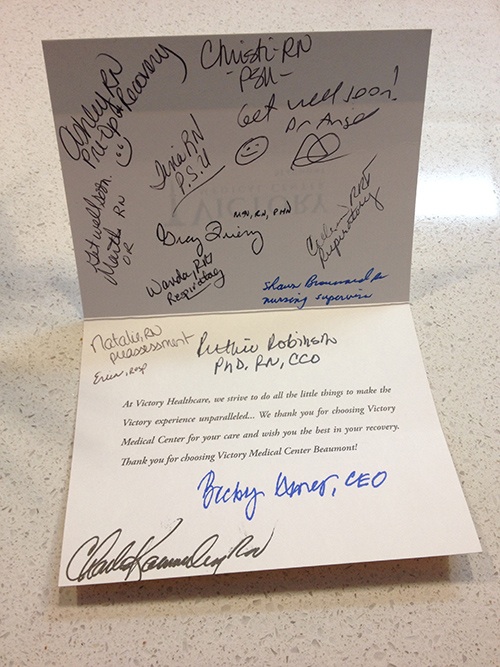 Christi-RN
-PSU-
Ashley RN
Pre-Op & Recovery
Get well soon!
Dr Angel
Tina RN
P.S.U
Get well soon.
Martha RN
OR
MEDICAL CENTER
VICTORY
MSN, RN, PHN
Greg
RRT
Respiratory
Wanda, RRT
Respiratory
Shaun
nursing supervisor
Natalie, RN
preassessment
Erica, Resp
Ruthie Robinson
PhD, RN, CCO
At Victory Healthcare, we strive to do all the little things to make the
Victory experience unparalleled... We thank you for choosing Victory
Medical Center for your care and wish you the best in your recovery.
Thank you for choosing Victory Medical Center Beaumont!
Becky, CEO
RN